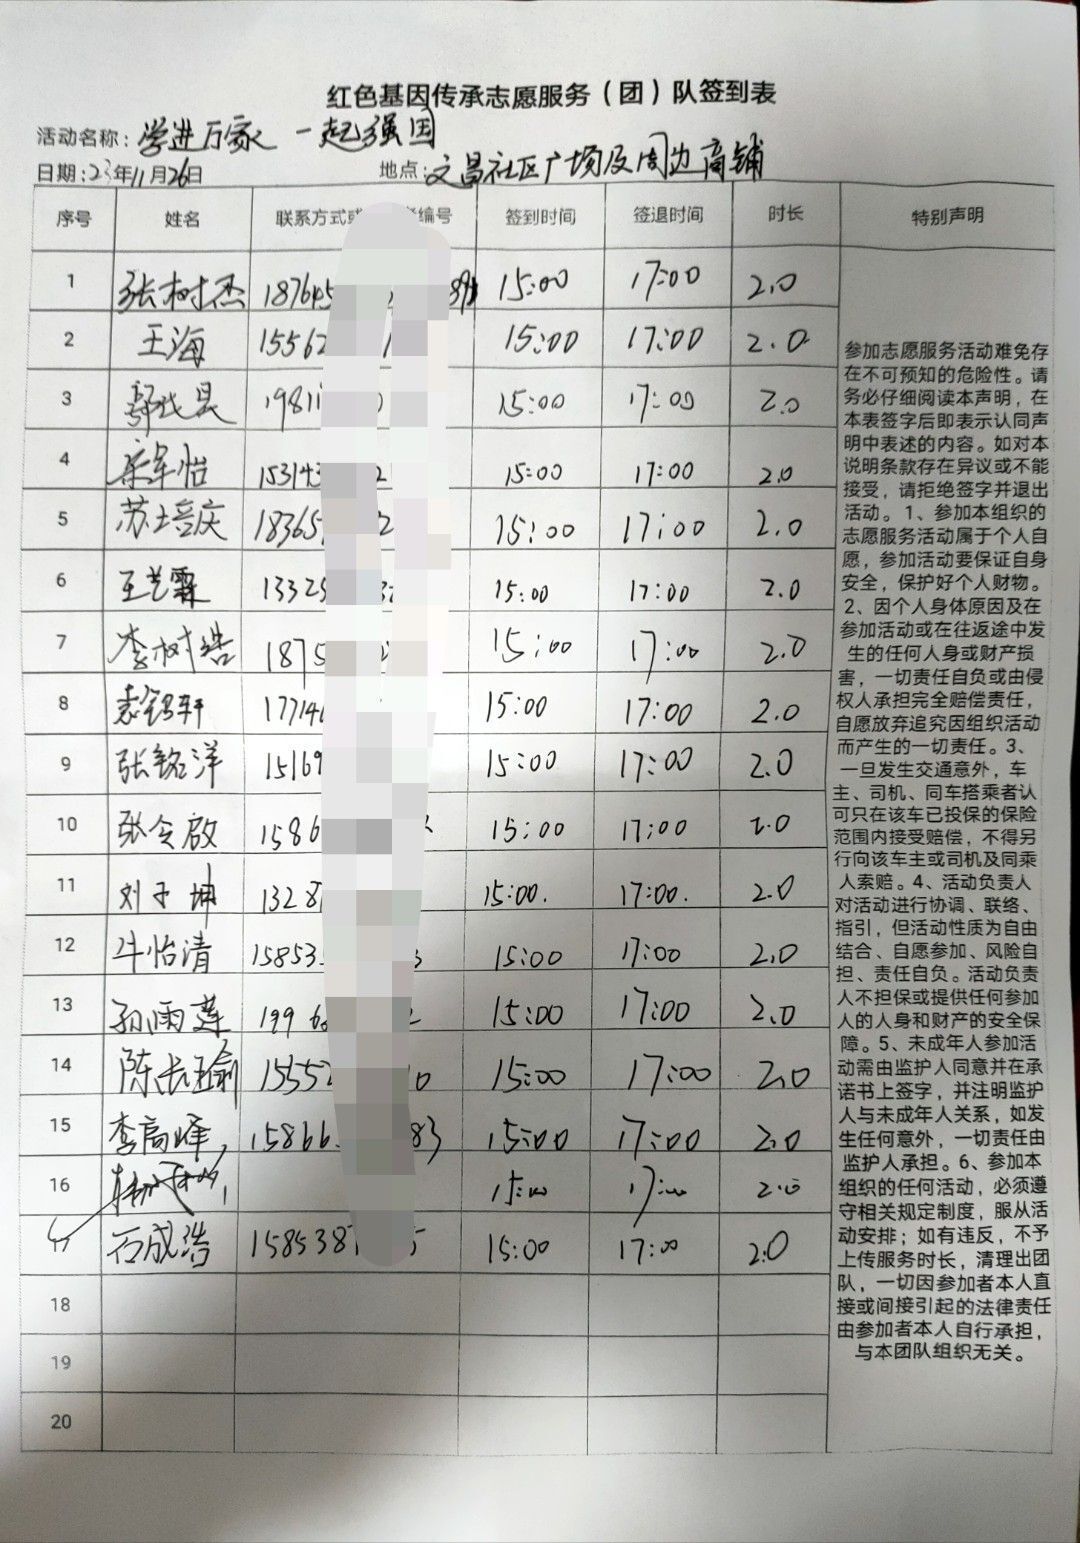 红色基因传承志愿服务（团）队签到表
活动名称：学进万家 一起强国
日期：23年11月26日 地点：文昌社区广场及周边商铺
序号 姓名 联系方式或 编号 签到时间 签退时间 时长 特别声明
1 张树杰 18764 15:00 17:00 2.0
2 王海 1556 15:00 17:00 2.0
3 1981 15:00 17:00 2.0
4 怡 15314 15:00 17:00 2.0
5 苏培庆 18365 15:00 17:00 2.0
6 王艺霖 1332 15:00 17:00 2.0
7 李树浩 1875 15:00 17:00 2.0
8 袁铭轩 17714 15:00 17:00 2.0
9 张铭洋 15169 15:00 17:00 2.0
10 张令启 1586 15:00 17:00 2.0
11 刘子坤 1328 15:00. 17:00. 2.0
12 牛怡清 15853 3 15:00 17:00 2.0
13 孙雨莲 1996 2 15:00 17:00 2.0
14 陈长瑜 15552 0 15:00 17:00 2.0
15 李高峰 15866 83 15:00 17:00 2.0
16 15:00 17:00 2.0
17 石成浩 1585387 5 15:00 17:00 2.0
18
19
20
参加志愿服务活动难免存
在不可预知的危险性。请
务必仔细阅读本声明，在
本表签字后即表示认同声
明中表述的内容。如对本
说明条款存在异议或不能
接受，请拒绝签字并退出
活动。1、参加本组织的
志愿服务活动属于个人自
愿，参加活动要保证自身
安全，保护好个人财物。
2、因个人身体原因及在
参加活动或在往返途中发
生的任何人身或财产损
害，一切责任自负或由侵
权人承担完全赔偿责任，
自愿放弃追究因组织活动
而产生的一切责任。3、
一旦发生交通意外，车
主、司机、同车搭乘者认
可只在该车已投保的保险
范围内接受赔偿，不得另
行向该车主或司机及同乘
人索赔。4、活动负责人
对活动进行协调、联络、
指引，但活动性质为自由
结合、自愿参加、风险自
担、责任自负。活动负责
人不担保或提供任何参加
人的人身和财产的安全保
障。5、未成年人参加活
动需由监护人同意并在承
诺书上签字，并注明监护
人与未成年人关系，如发
生任何意外，一切责任由
监护人承担。6、参加本
组织的任何活动，必须遵
守相关规定制度，服从活
动安排；如有违反，不予
上传服务时长，清理出团
队，一切因参加者本人直
接或间接引起的法律责任
由参加者本人自行承担，
与本团队组织无关。